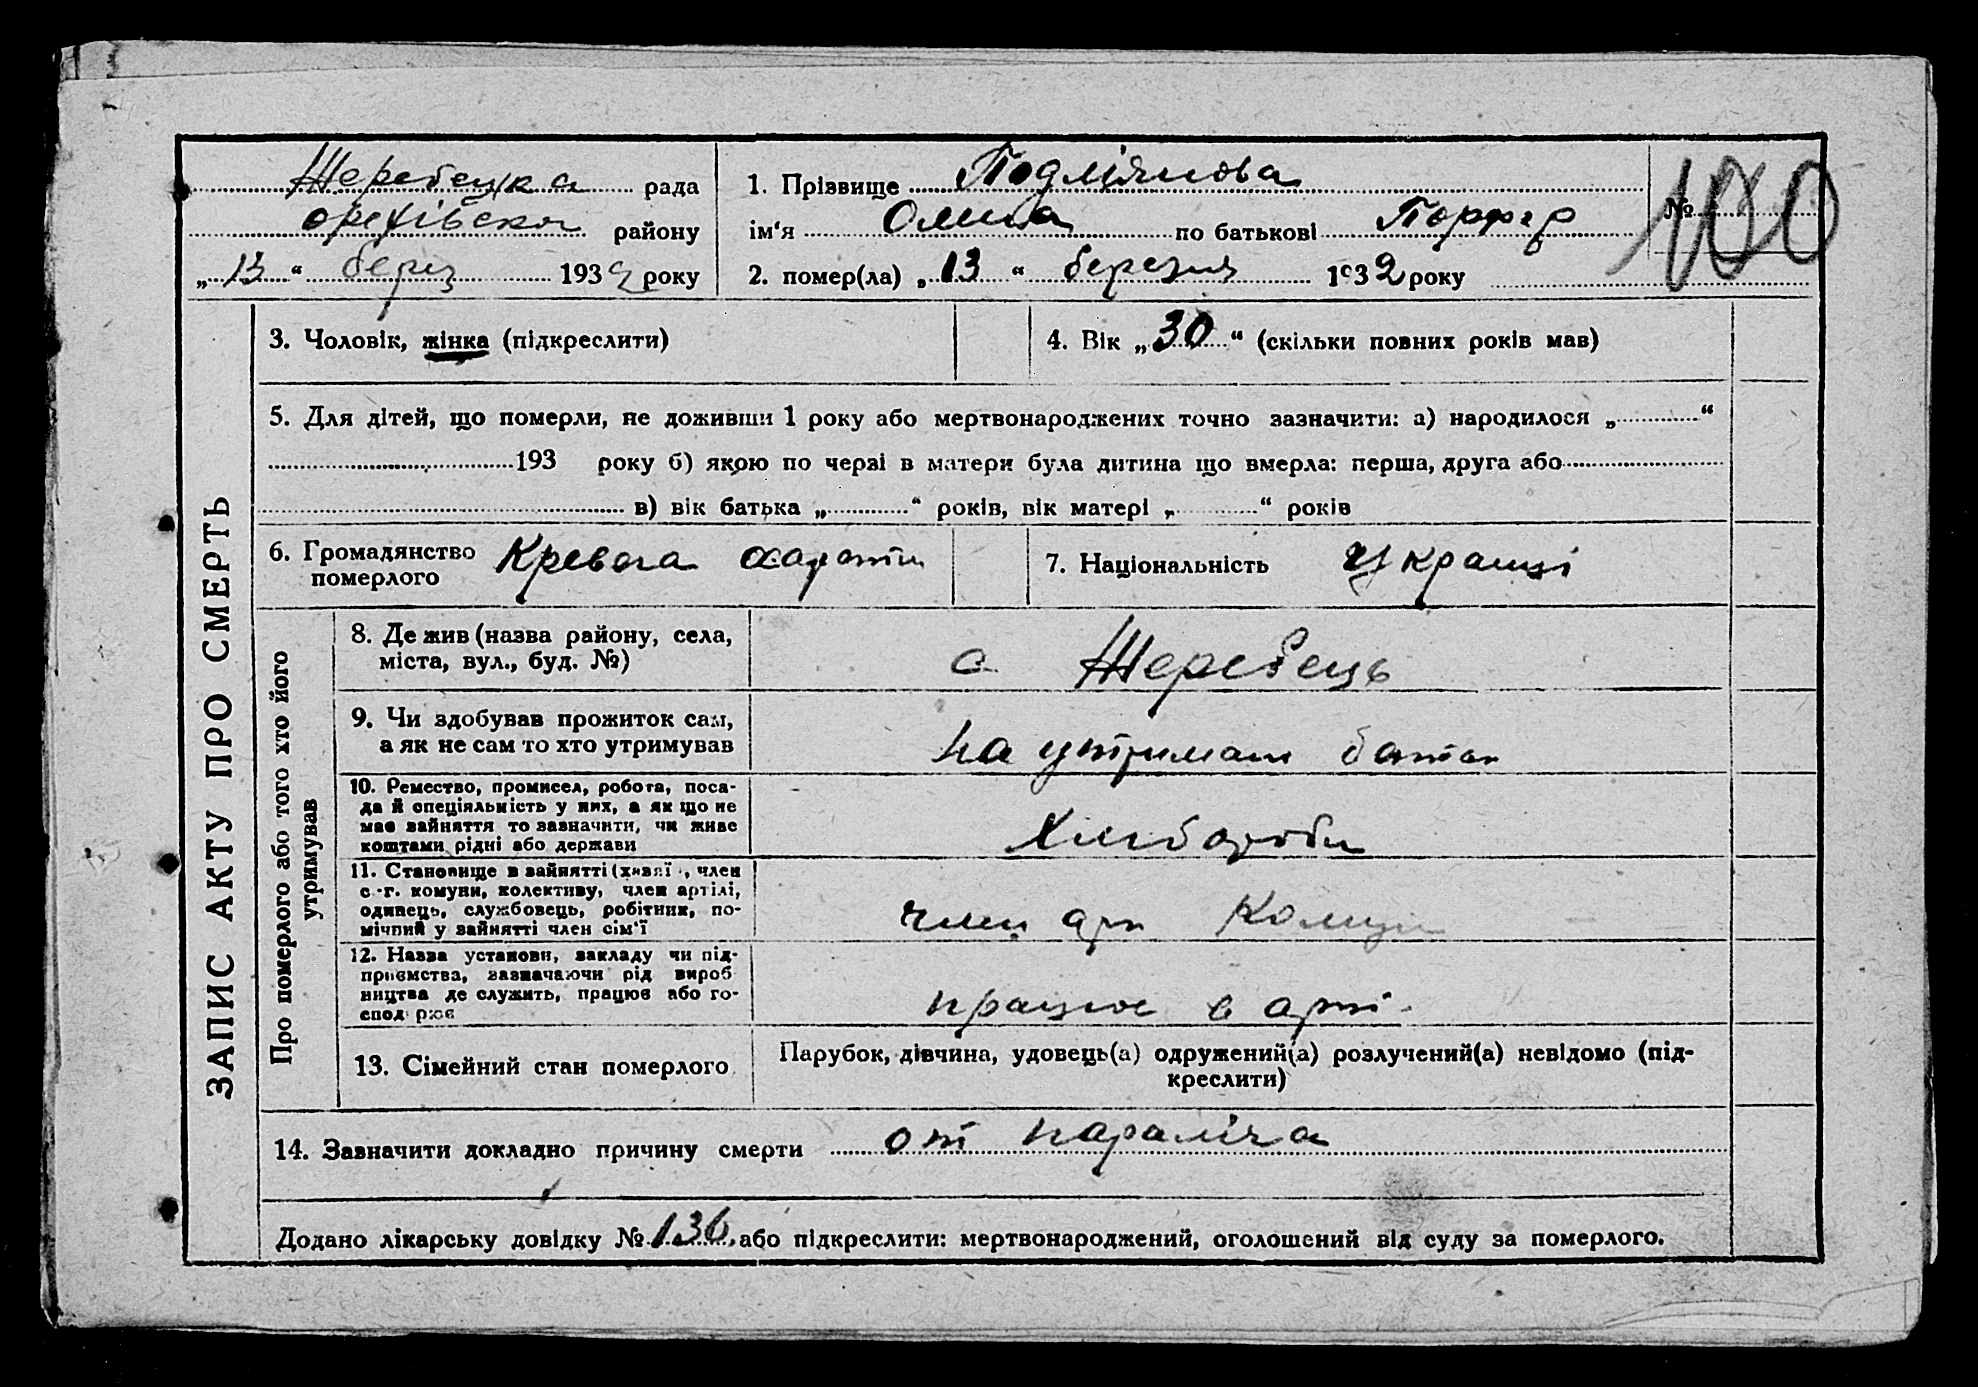 Жеребецька рада
оріхівского району
„13“ берез 1932 року
1. Прізвище Подліянова
ім‘я Олина по батькові Порфир
2. помер(ла) „13“ березня 1932 року
№ 100
ЗАПИС АКТУ ПРО СМЕРТЬ
3. Чоловік, жінка (підкреслити)
4. Вік „30“ (скільки повних років мав)
5. Для дітей, що померли, не доживши 1 року або мертвонароджених точно зазначити: а) народилося „ “
193 року б) якою по черзі в матери була дитина що вмерла: перша, друга або
в) вік батька „ “ років, вік матері „ “ років
6. Громадянство
померлого
7. Національність Украінці
Про померлого або того хто його
утримував
8. Де жив (назва району, села,
міста, вул., буд. №)
с Жеребець
9. Чи здобував прожиток сам,
а як не сам то хто утримував
на утриман батьк
10. Ремество, промисел, робота, поса-
да й спеціяльність у них, а як що не
має зайняття то зазначити, чи живе
коштами рідні або держави
Хлібороби
11. Становище в зайнятті (хазяї, член
с.-г. комуни, колективу, член артілі,
одинець, службовець, робітник, по-
мічний у зайнятті член сім'ї
член арт
12. Назва установи, закладу чи під-
приємства, зазначаючи рід вироб
ництва де служить, працює або го-
спод рює
працює в арті
13. Сімейний стан померлого
Парубок, дівчина, удовець(а) одружений(а) розлучений(а) невідомо (під-
креслити)
14. Зазначити докладно причину смерти от параліча
Додано лікарську довідку № 136, або підкреслити: мертвонароджений, оголошений від суду за померлого.